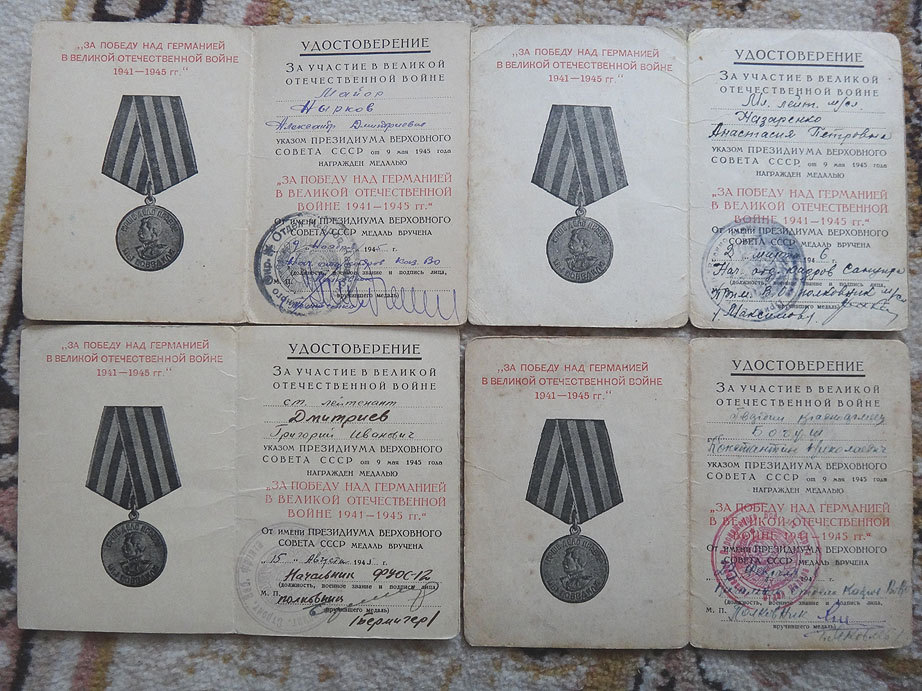 „ЗА ПОБЕДУ НАД ГЕРМАНИЕЙ
В ВЕЛИКОЙ ОТЕЧЕСТВЕННОЙ ВОЙНЕ
1941—1945 гг."
УДОСТОВЕРЕНИЕ
ЗА УЧАСТИЕ В ВЕЛИКОЙ
ОТЕЧЕСТВЕННОЙ ВОЙНЕ
Майор
Нырков
Александр Дмитриевич
УКАЗОМ ПРЕЗИДИУМА ВЕРХОВНОГО
СОВЕТА СССР от 9 мая 1945 года
НАГРАЖДЕН МЕДАЛЬЮ
"ЗА ПОБЕДУ НАД ГЕРМАНИЕЙ
В ВЕЛИКОЙ ОТЕЧЕСТВЕННОЙ
ВОЙНЕ 1941—1945 гг."
ОТ ИМЕНИ ПРЕЗИДИУМА ВЕРХОВНОГО
СОВЕТА СССР МЕДАЛЬ ВРУЧЕНА
1945 г.
Нач. отд. кадров Каз. ВО
(должность, военное звание и подпись лица,
М. П.
вручившего медаль)
„ЗА ПОБЕДУ НАД ГЕРМАНИЕЙ
В ВЕЛИКОЙ ОТЕЧЕСТВЕННОЙ ВОЙНЕ
1941—1945 гг."
УДОСТОВЕРЕНИЕ
ЗА УЧАСТИЕ В ВЕЛИКОЙ
ОТЕЧЕСТВЕННОЙ ВОЙНЕ
Мл. лейт. м/сл.
Назаренко
Анастасия Петровна
УКАЗОМ ПРЕЗИДИУМА ВЕРХОВНОГО
СОВЕТА СССР от 9 мая 1945 года
НАГРАЖДЕН МЕДАЛЬЮ
"ЗА ПОБЕДУ НАД ГЕРМАНИЕЙ
В ВЕЛИКОЙ ОТЕЧЕСТВЕННОЙ
ВОЙНЕ 1941—1945 гг."
ОТ ИМЕНИ ПРЕЗИДИУМА ВЕРХОВНОГО
СОВЕТА СССР МЕДАЛЬ ВРУЧЕНА
2 марта 6 г.
Нач. отд. кадров Санупра
(должность, военное звание и подпись лица,
полковник м/сл
вручившего медаль)
/Максимов/
„ЗА ПОБЕДУ НАД ГЕРМАНИЕЙ
В ВЕЛИКОЙ ОТЕЧЕСТВЕННОЙ ВОЙНЕ
1941—1945 гг."
УДОСТОВЕРЕНИЕ
ЗА УЧАСТИЕ В ВЕЛИКОЙ
ОТЕЧЕСТВЕННОЙ ВОЙНЕ
ст. лейтенант
Дмитриев
Григорий Иванович
УКАЗОМ ПРЕЗИДИУМА ВЕРХОВНОГО
СОВЕТА СССР от 9 мая 1945 года
НАГРАЖДЕН МЕДАЛЬЮ
"ЗА ПОБЕДУ НАД ГЕРМАНИЕЙ
В ВЕЛИКОЙ ОТЕЧЕСТВЕННОЙ
ВОЙНЕ 1941—1945 гг."
ОТ ИМЕНИ ПРЕЗИДИУМА ВЕРХОВНОГО
СОВЕТА СССР МЕДАЛЬ ВРУЧЕНА
"15" Августа 1945 г.
Начальник ФУОС-12
(должность, военное звание и подпись лица,
М. П. полковник
вручившего медаль)
„ЗА ПОБЕДУ НАД ГЕРМАНИЕЙ
В ВЕЛИКОЙ ОТЕЧЕСТВЕННОЙ ВОЙНЕ
1941—1945 гг."
УДОСТОВЕРЕНИЕ
ЗА УЧАСТИЕ В ВЕЛИКОЙ
ОТЕЧЕСТВЕННОЙ ВОЙНЕ
Гвардии красноармеец
Богуш
Константин Николаевич
УКАЗОМ ПРЕЗИДИУМА ВЕРХОВНОГО
СОВЕТА СССР от 9 мая 1945 года
НАГРАЖДЕН МЕДАЛЬЮ
"ЗА ПОБЕДУ НАД ГЕРМАНИЕЙ
В ВЕЛИКОЙ ОТЕЧЕСТВЕННОЙ
ВОЙНЕ 1941—1945 гг."
ОТ ИМЕНИ ПРЕЗИДИУМА ВЕРХОВНОГО
СОВЕТА СССР МЕДАЛЬ ВРУЧЕНА
(должность, военное звание и подпись лица,
М. П. Полковник
вручившего медаль)